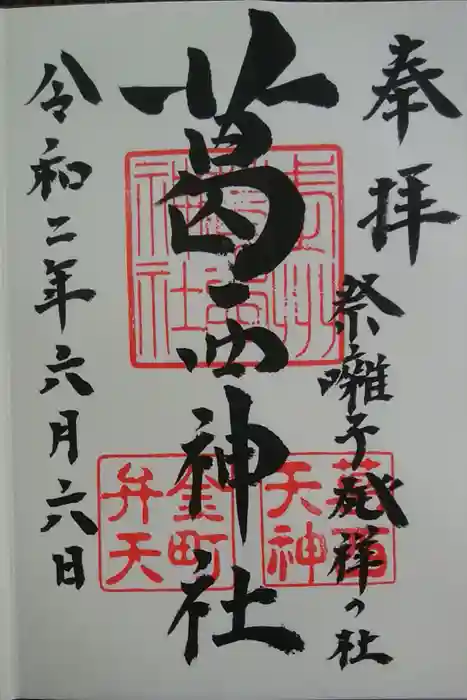 奉拝
祭囃子発祥の社
葛西神社
令和二年六月六日
葛西
神社
葛西
天神
金町
弁天